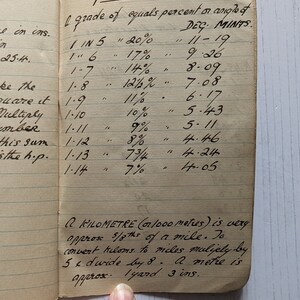 A grade of equals percent or angle of
DEG. MINTS.
1 IN 5 " 20% " 11-19
1 " 6 " 17% " 9 26
1-7 " 14% " 8-09
1.8 " 12½% " 7.08
1.9 " 11% " 6.17
1.10 " 10% " 5.43
1.11 " 9% " 5.11
1.12 " 8% " 4.46
1.13 " 7¾ " 4.24
1.14 " 7% " 4.05
A KILOMETRE (or 1000 metres) is very
approx 5/8ths of a mile. To
convert kiloms to miles multiply by
5 & divide by 8. A metre is
approx. 1 yard 3 ins.
re in ins.
in
25.4.
ke the
square it
Multiply
number
this sum
is the h.p.